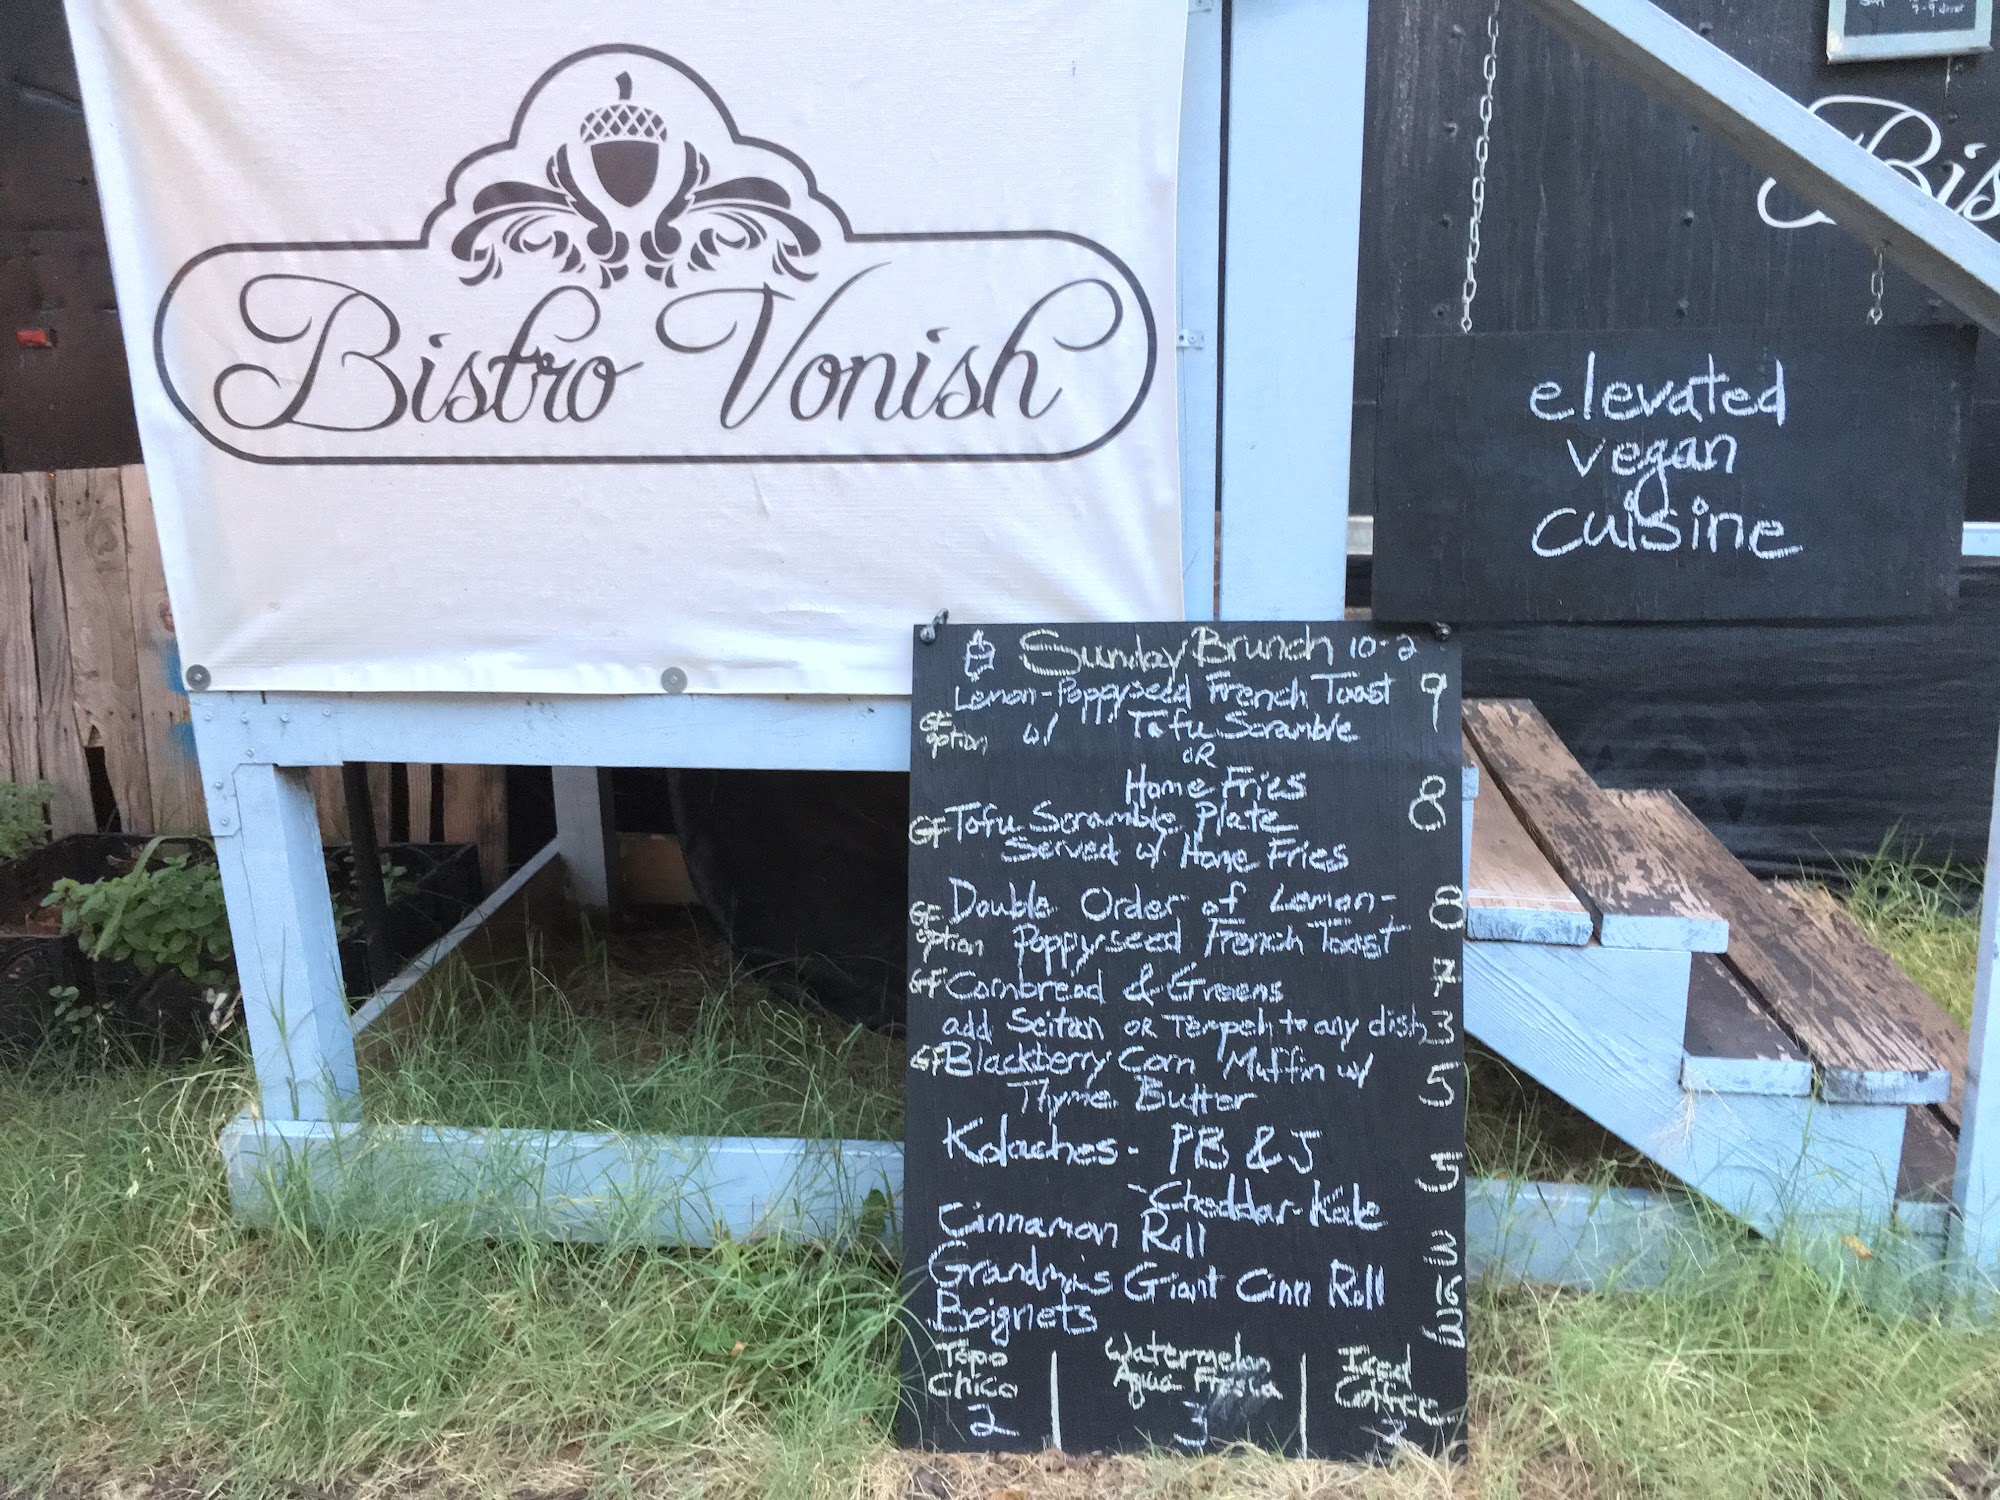 Bistro Vonish
Bis
elevated
vegan
cuisine
Sunday Brunch 10-2
Lemon-Poppyseed French Toast 9
GF option w/ Tofu Scramble
OR
Home Fries
GF Tofu Scramble Plate 8
Served w/ Home Fries
GF option Double Order of Lemon- 8
Poppyseed French Toast
GF Cornbread & Greens 7
add Seitan or Tempeh to any dish 3
GF Blackberry Corn Muffin w/ 5
Thyme Butter
Kolaches - PB & J 5
- Cheddar-Kale
Cinnamon Roll 3
Grandma's Giant Cinn Roll 16
Beignets 3
Topo Chico 2
Watermelon Agua Fresca 3
Iced Coffee 3